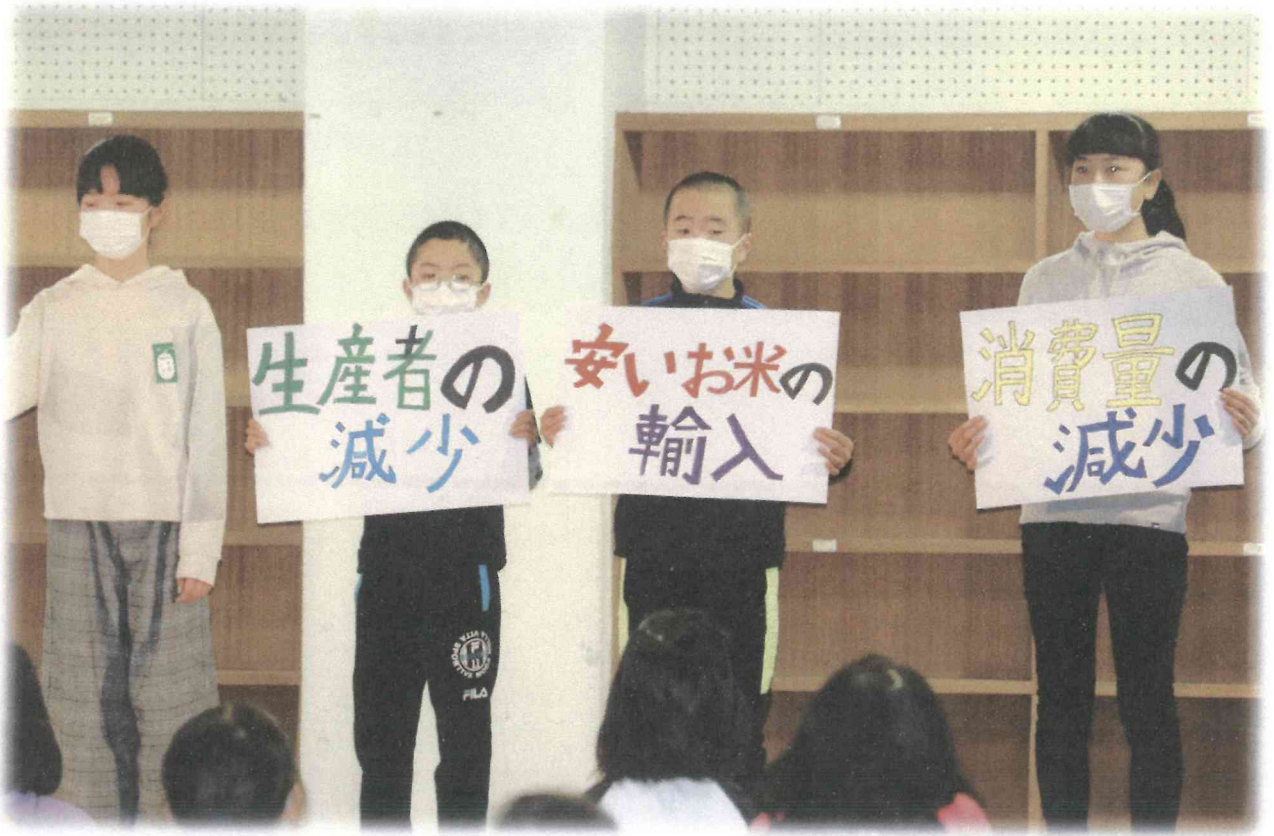 生産者の
減少
安いお米の
輸入
消費量の
減少
FILA